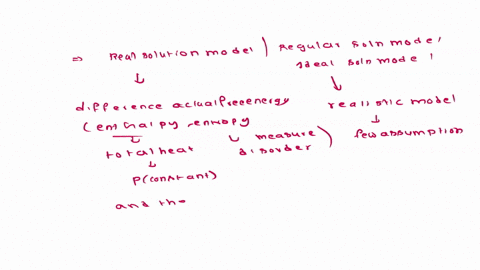 ⇒ Real solution model ) Regular soln model
Ideal soln model
difference actual free energy
realistic model
(enthalpy - entropy
few assumption
total heat
measure disorder)
P(constant)
and the